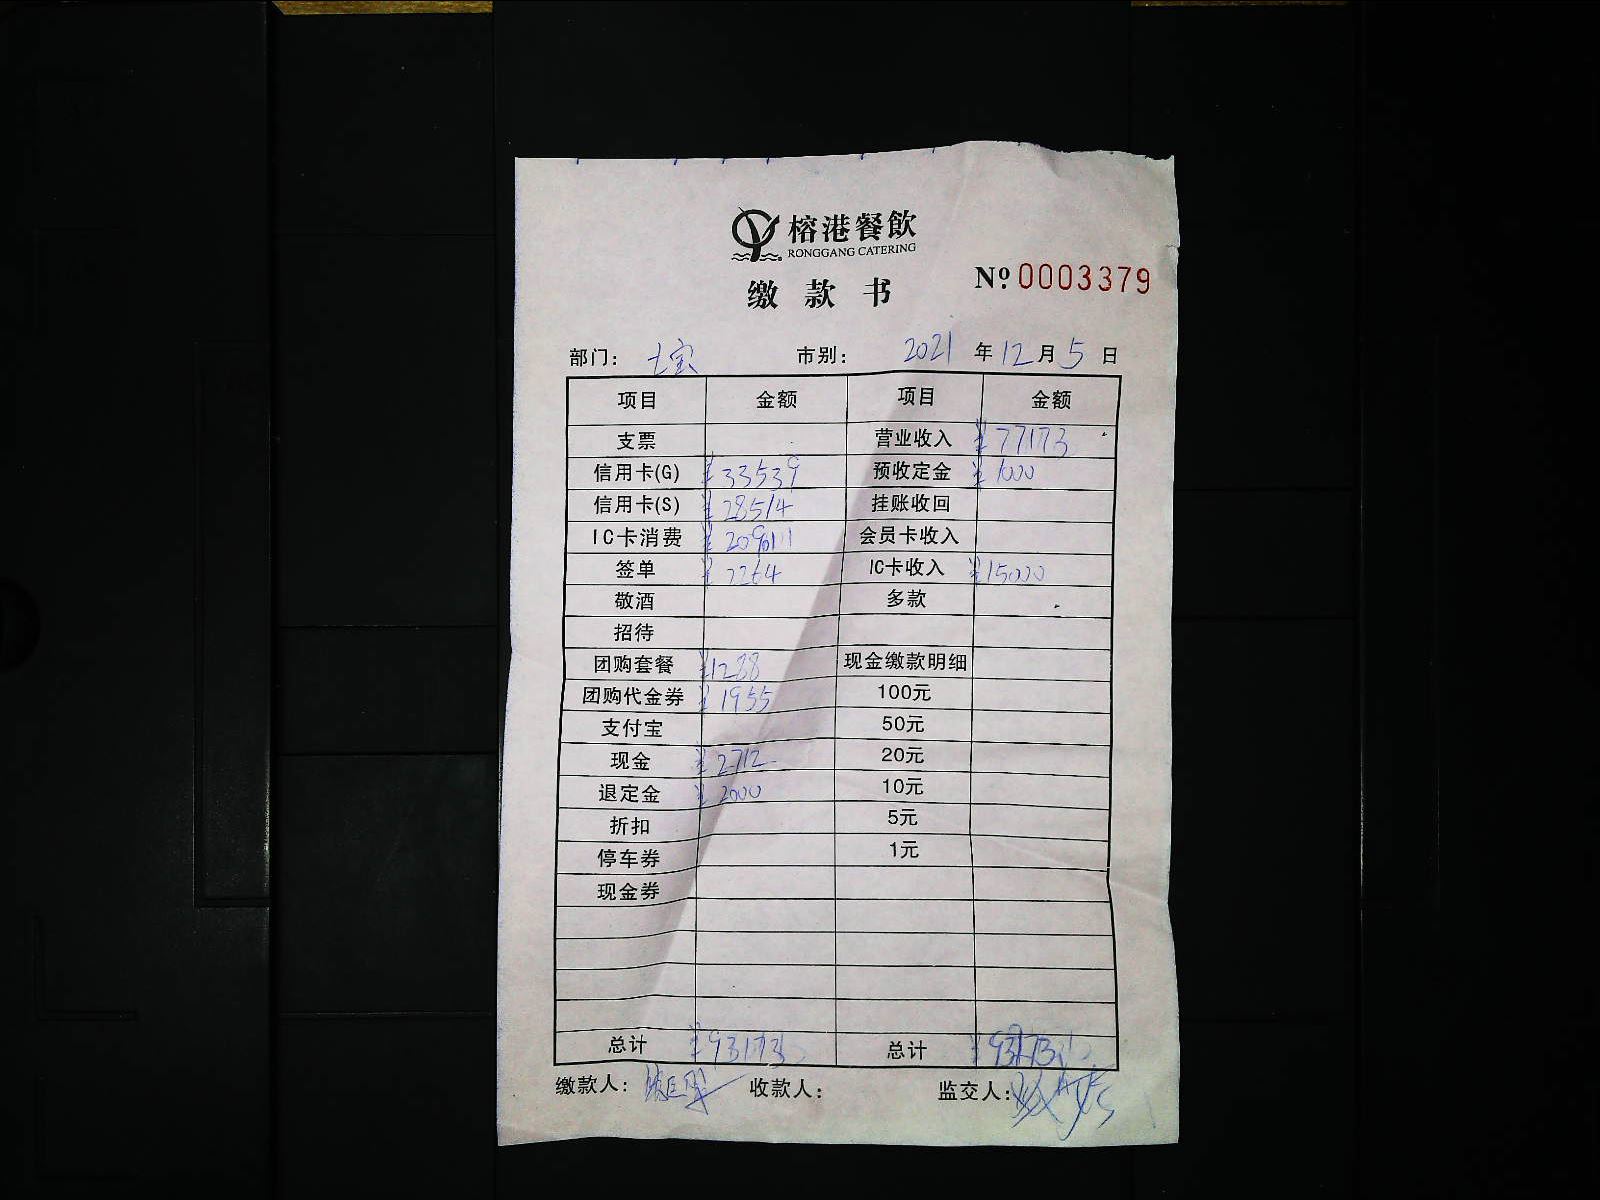 榕港餐飲
RONGGANG CATERING
缴款书
Nº 0003379
部门： 七宝 市别： 2021 年 12 月 5 日
项目 金额 项目 金额
支票 营业收入 ¥77173
信用卡(G) ¥33539 预收定金 ¥1000
信用卡(S) ¥28514 挂账收回
IC卡消费 ¥20901 会员卡收入
签单 ¥2264 IC卡收入 ¥15000
敬酒 多款
招待
团购套餐 ¥1288 现金缴款明细
团购代金券 ¥1955 100元
支付宝 50元
现金 ¥2712 20元
退定金 ¥2000 10元
折扣 5元
停车券 1元
现金券
总计 ¥93173 总计 ¥93173
缴款人： 收款人： 监交人：